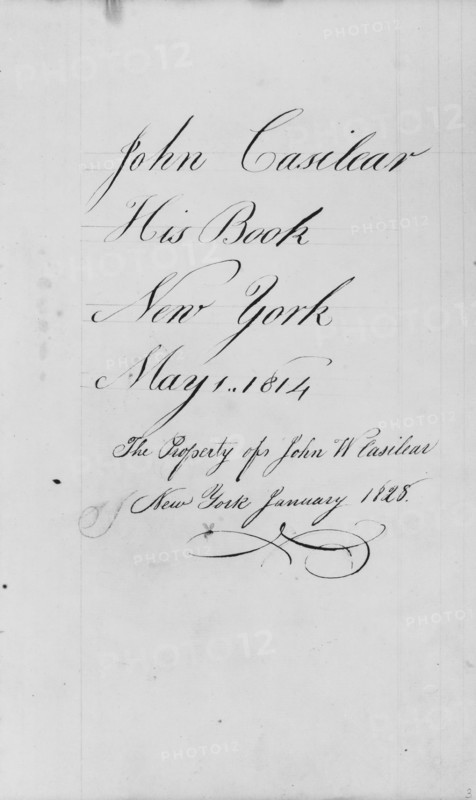 John Casilear
His Book
New York
May 1.. 1814
The Property of John W Casilear
New York January 1828.